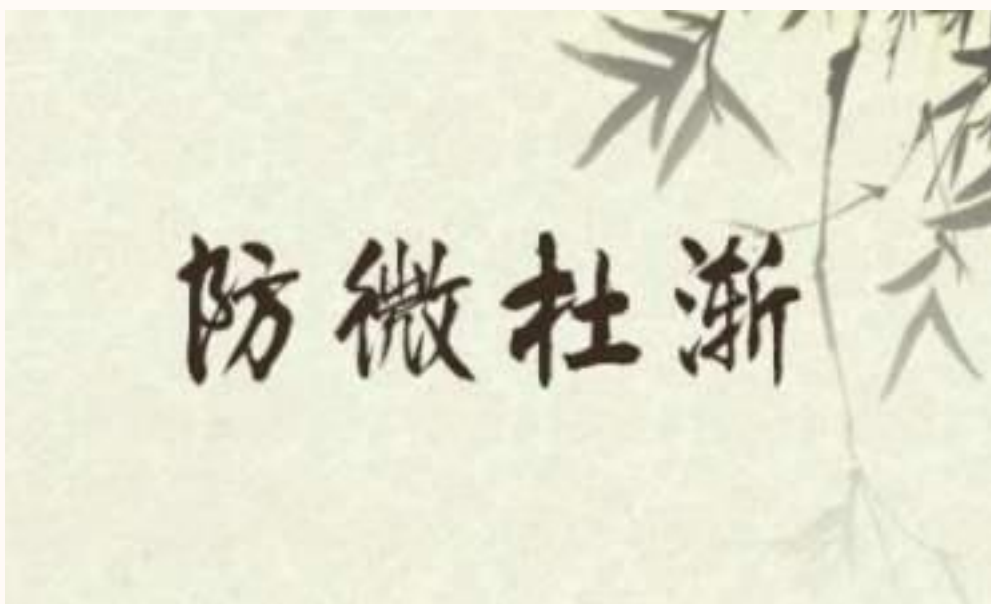 防微杜渐